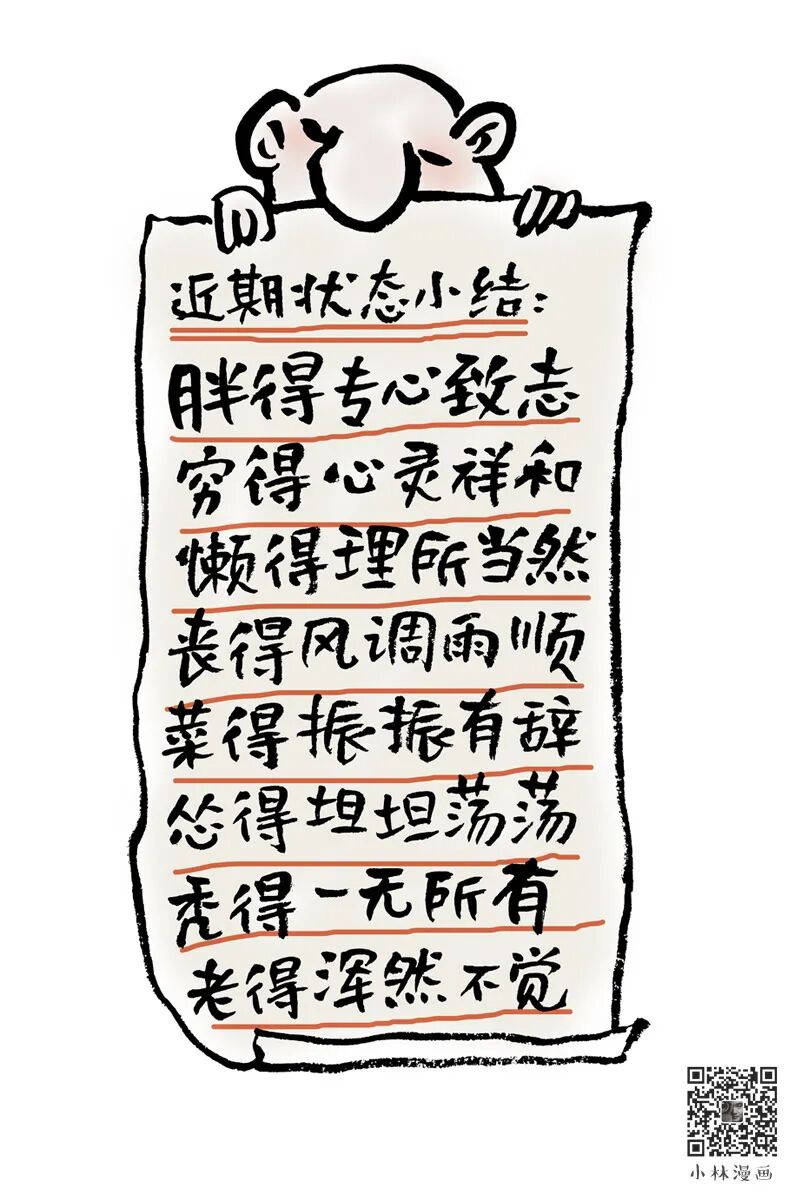 近期状态小结：
胖得专心致志
穷得心灵祥和
懒得理所当然
丧得风调雨顺
菜得振振有辞
怂得坦坦荡荡
秃得一无所有
老得浑然不觉
小林漫画